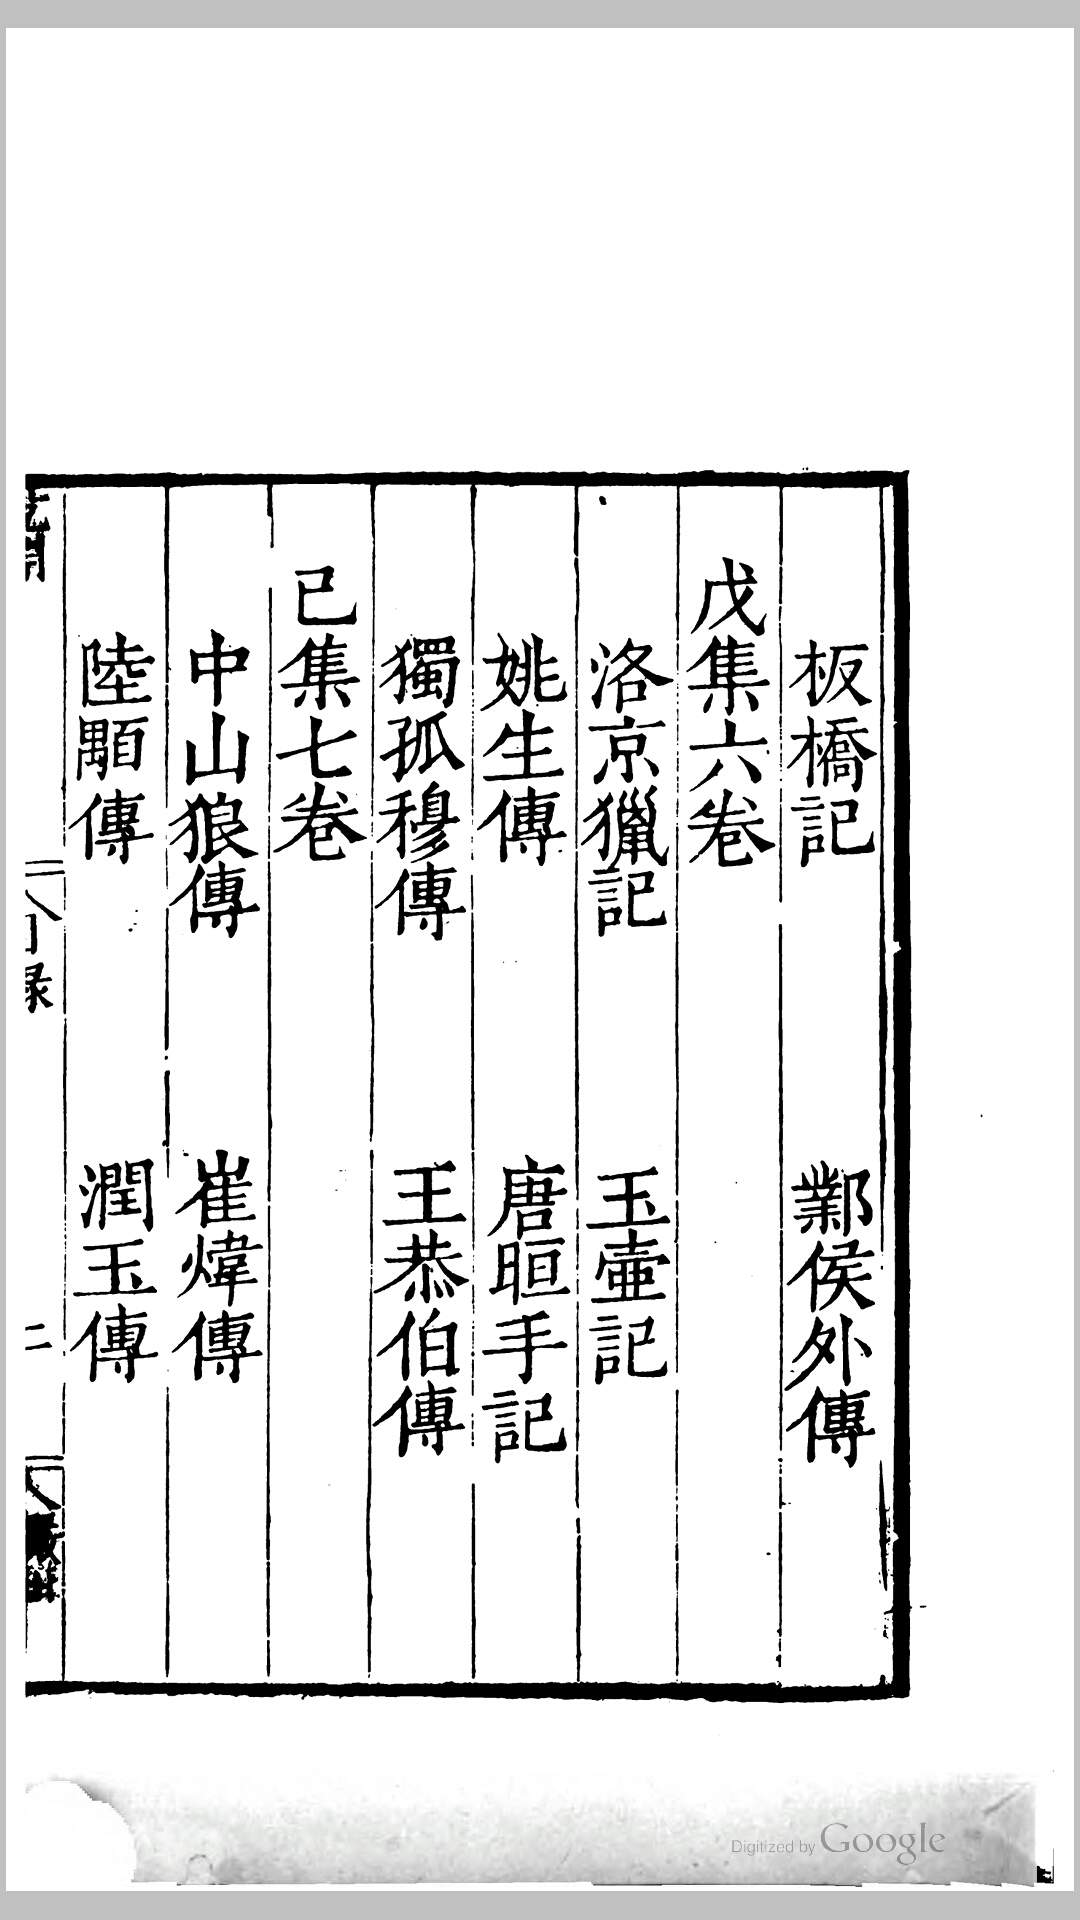 板橋記 鄴侯外傳
戊集六卷
洛京獵記 玉壷記
姚生傳 唐晅手記
獨孤穆傳 王恭伯傳
已集七卷
中山狼傳 崔煒傳
陸顒傳 潤玉傳
目録
二
Digitized by Google